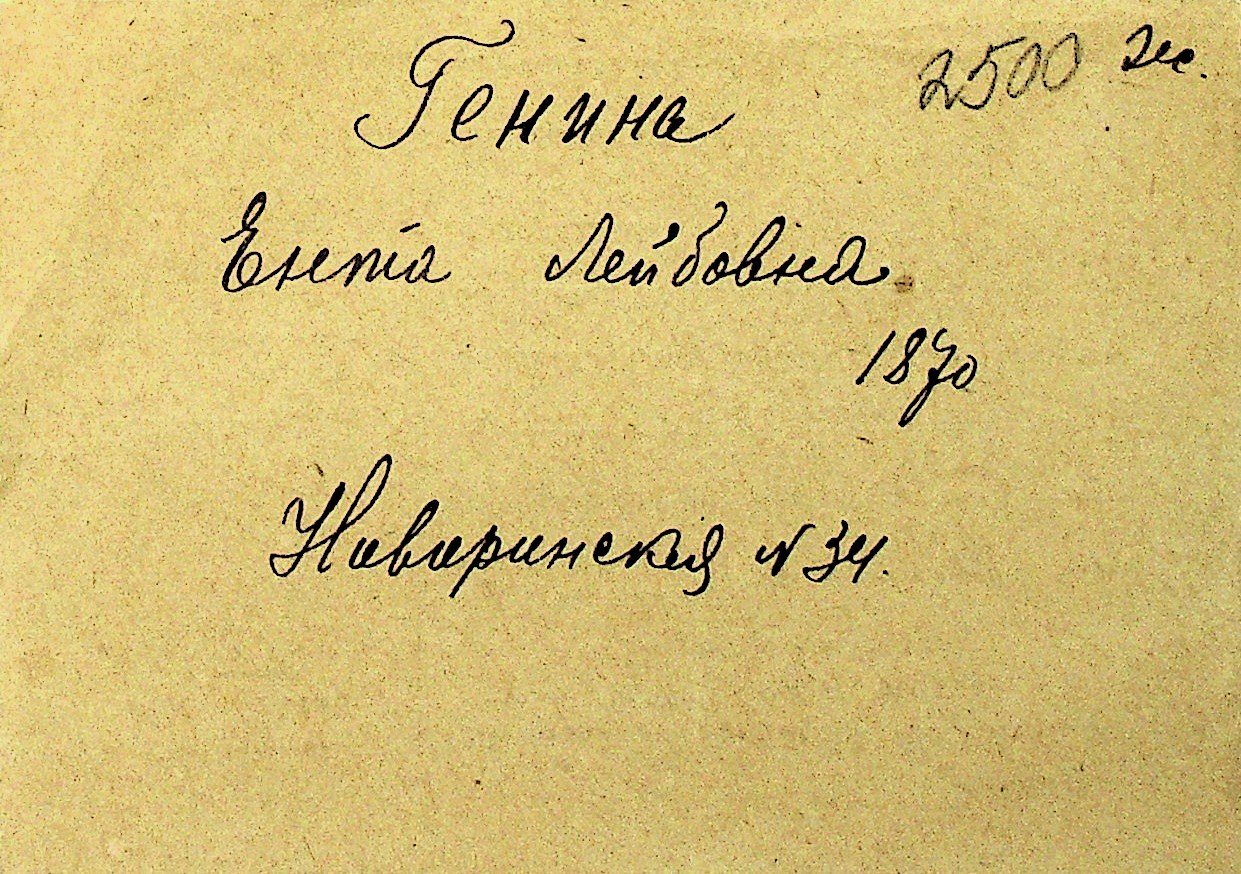 Генина
2500 Же.
Ента Лейбовна
1870
Наваринская N 34.